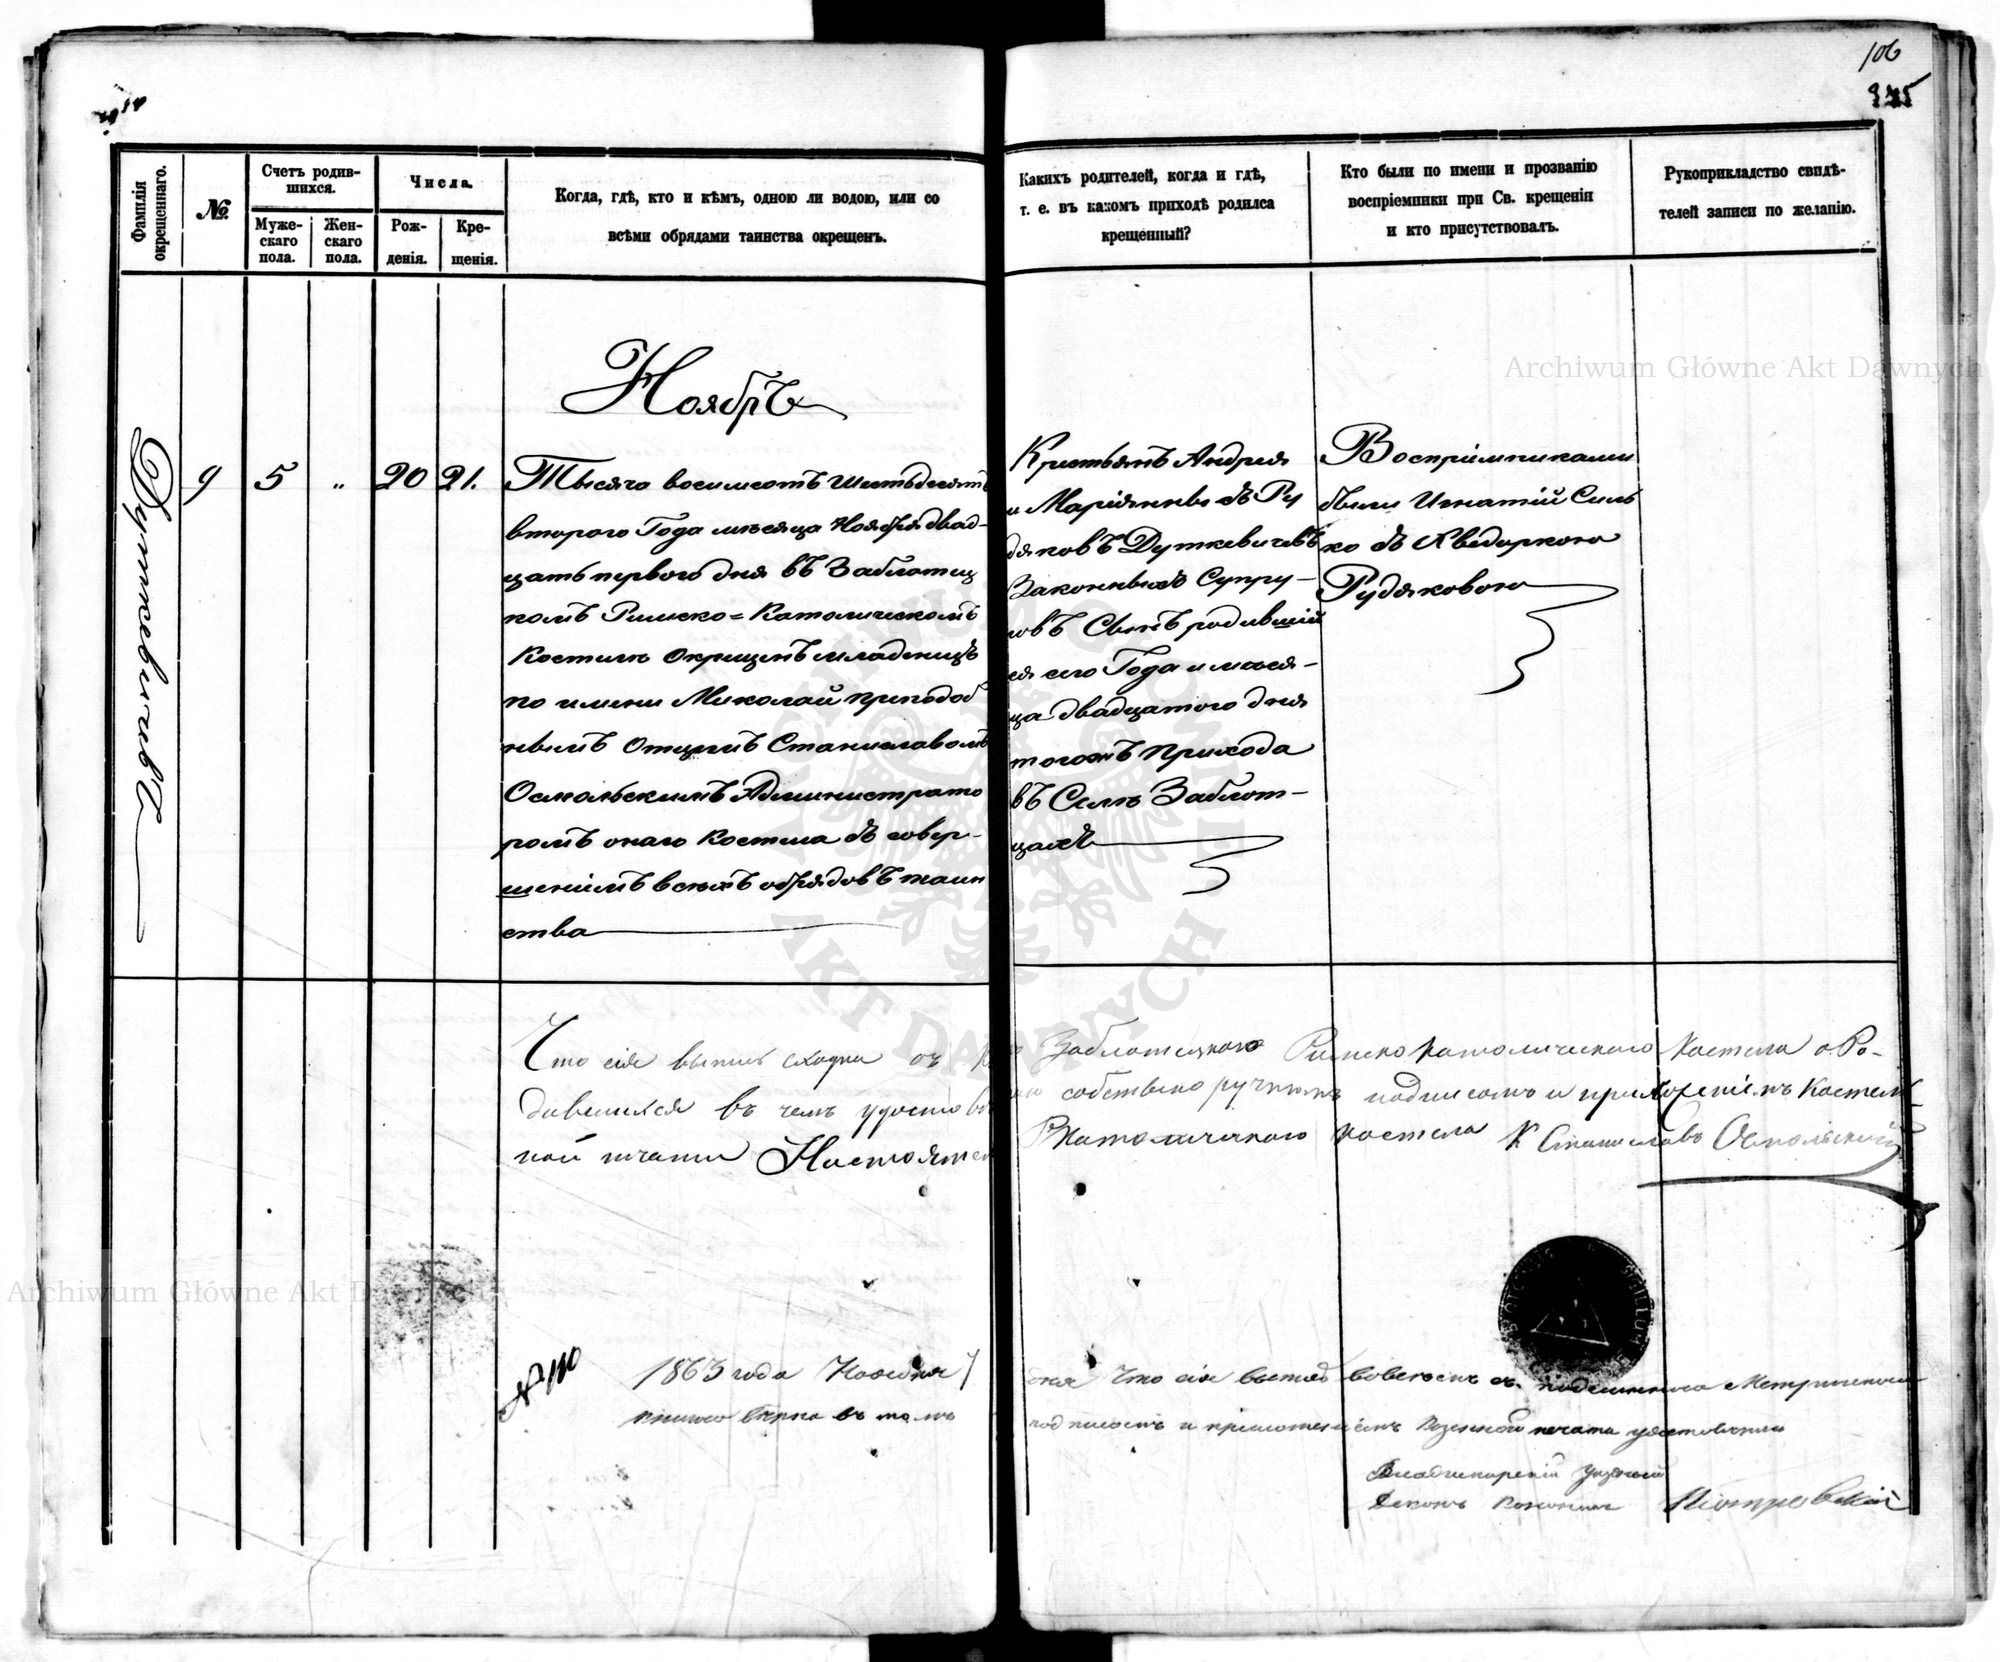 106
375
Фамилія окрещеннаго.
№.
Счетъ родив-
шихся.
Муже-
скаго
пола.
Жен-
скаго
пола.
Числа.
Рож-
денія.
Кре-
щенія.
Когда, гдѣ, кто и кѣмъ, одною ли водою, или со
всѣми обрядами таинства окрещенъ.
Какихъ родителей, когда и гдѣ,
т. е. въ какомъ приходѣ родился
крещенный?
Кто были по имени и прозванію
воспріемники при Св. крещеніи
и кто присутствовалъ.
Рукоприкладство свидѣ-
телей записи по желанію.
Ноябрь
Дуткевичъ
9
5
"
20
21.
Тысяча восимсотъ шестьдесятъ
второго Года мѣсяца Ноября двад-
цать первого дня въ Заблотец
комъ Римско=Католическомъ
Костилѣ Окрещенъ младенецъ
по имени Миколай преподоб
нымъ Отцемъ Станиславомъ
Осмольскимъ Администрато
ромъ онаго Костела съ совер-
шеніемъ всѣхъ обрядовъ таин
ства
Крестьянъ Андрея
и Маріянны съ Ру
дяковъ Дуткевичевъ
Законныхъ Супру-
говъ Сынъ родившій
ся сего Года и мѣся-
ца двадцатого дня
тогожъ Прихода
въ Селѣ Заблот-
цахъ
Воспріемниками
были Игнатій Силь
ко съ Хведоркою
Рудяковою
Что сія выпись сходна съ Заблотецкаго Римско католического костела о Ро-
дившихся въ чемъ собственоручнымъ подписомъ и приложеніемъ Костель
ной печати Настоятель Р Католичского костела К Станиславъ Осмольскій
SIGILLUM
№ 110
1863 года Ноября 7 дня Что сія выпись
книгою вѣрна въ томъ подписомъ и приложеніемъ Казенной печати удостовѣряю
Владимирскій Уѣздный
Деканъ Каноникъ Піотровскій
Archiwum Główne Akt Dawnych
Archiwum Główne Akt Dawnych
ARCHIWUM GŁÓWNE
AKT DAWNYCH